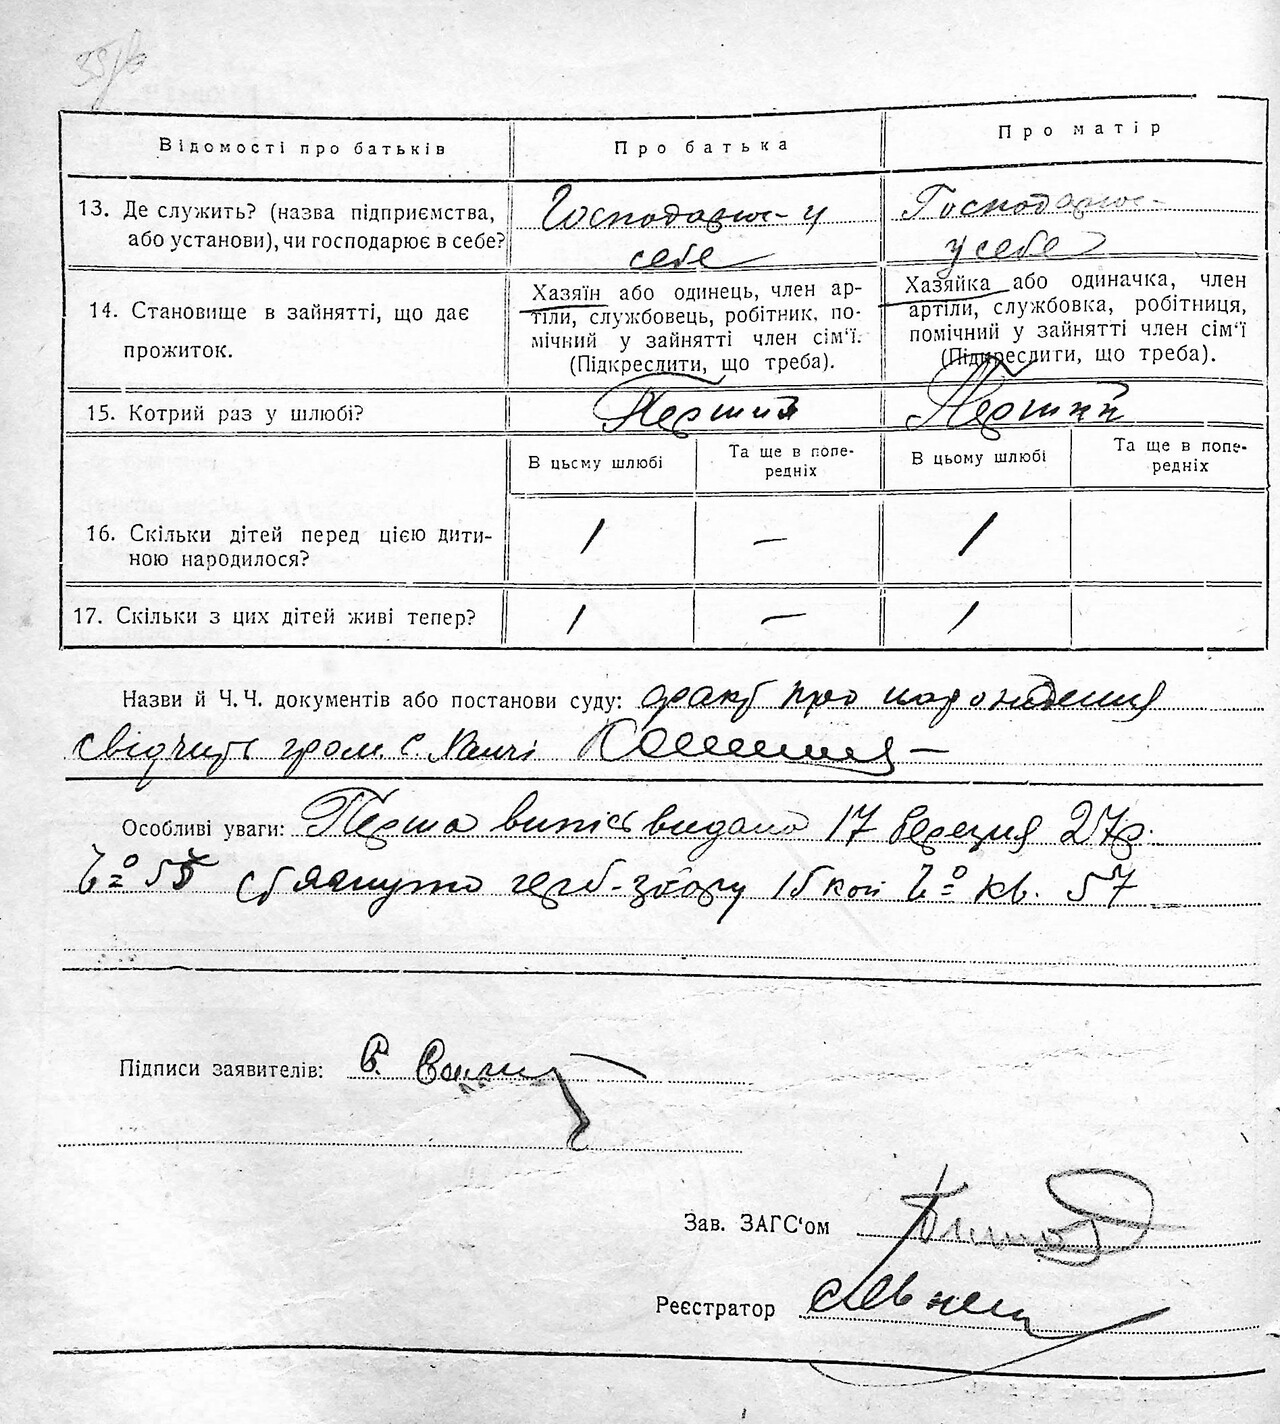 Відомості про батьків
Про батька
Про матір
13. Де служить? (назва підприємства,
або установи), чи господарює в себе?
Господарює у
себе
Господарює
у себе
14. Становище в зайнятті, що дає
прожиток.
Хазяїн або одинець, член ар-
тіли, службовець, робітник, по-
мічний у зайнятті член сім'ї.
(Підкреслити, що треба).
Хазяйка або одиначка, член
артіли, службовка, робітниця,
помічний у зайнятті член сім'ї
(Підкреслити, що треба).
15. Котрий раз у шлюбі?
Перший
Перший
В цьому шлюбі
Та ще в попе-
редніх
В цьому шлюбі
Та ще в попе-
редніх
16. Скільки дітей перед цією дити-
ною народилося?
1
—
1
17. Скільки з цих дітей живі тепер?
1
—
1
Назви й Ч. Ч. документів або постанови суду: факт про народження
свідчить гром. с.
Особливі уваги: Перша випись видана 17 березня 27р.
№ 55 герб-збору коп № кв. 57
Підписи заявителів:
Зав. ЗАГС'ом
Реєстратор